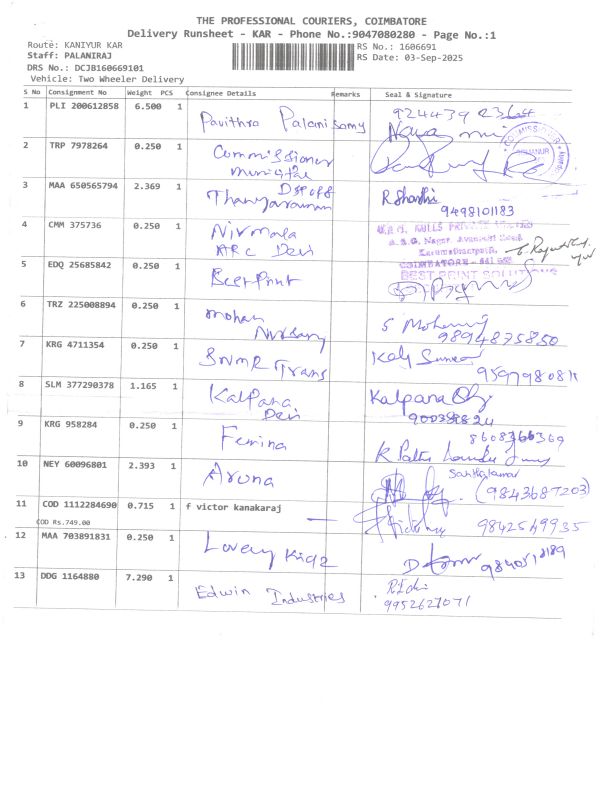 THE PROFESSIONAL COURIERS, COIMBATORE
Delivery Runsheet - KAR - Phone No.:9047080280 - Page No.:1
Route: KANIYUR KAR
RS No.: 1606691
Staff: PALANIRAJ
RS Date: 03-Sep-2025
DRS No.: DCJB160669101
Vehicle: Two Wheeler Delivery
S No Consignment No Weight PCS Consignee Details Remarks Seal & Signature
1 PLI 200612858 6.500 1 Pavithra Palanisamy
2 TRP 7978264 0.250 1 Commissioner
Municipal
3 MAA 650565794 2.369 1 DSP off
Thanjavaraman R Shanthi
9498101183
4 CMM 375736 0.250 1 Nirmala
ARC Devi
COIMBATORE - 641 659
5 EDQ 25685842 0.250 1 Best Print BEST PRINT SOLUTIONS
6 TRZ 225008894 0.250 1 Mohan
Nursary
9894875850
7 KRG 4711354 0.250 1 SNMR Trans
8 SLM 377290378 1.165 1 Kalpana
Devi Kalpana
9 KRG 958284 0.250 1 Femina 8608366369
10 NEY 60096801 2.393 1 Aruna Santhakumar
(9843687203)
11 COD 1112284690 0.715 1 f victor kanakaraj 9842549935
COD Rs.749.00
12 MAA 703891831 0.250 1 Lovely Kidz
13 DDG 1164880 7.290 1 Edwin Industries
9952627071